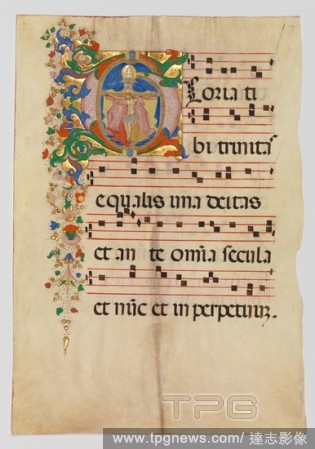 17
Gloria ti
bi trinitaˢ
equalis una deitas
et an te omīa secula
et nūc et in perpetuuȝ.
TPG
www.tpgnews.com/ 達志影像